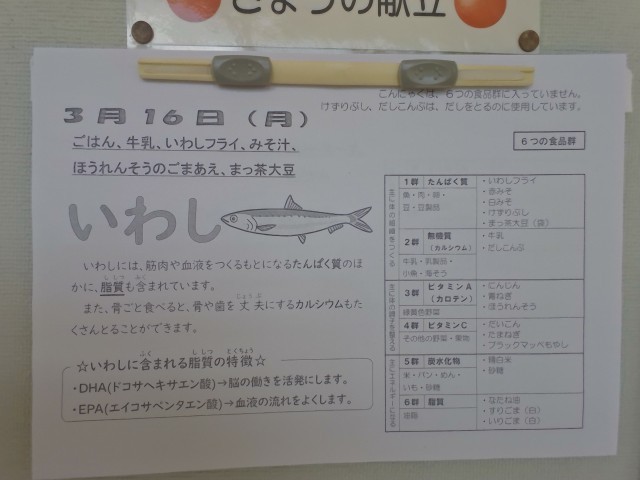 きょうの献立
こんにゃくは、6つの食品群に入っていません。
けずりぶし、だしこんぶは、だしをとるのに使用しています。
3月16日(月)
ごはん、牛乳、いわしフライ、みそ汁、
ほうれんそうのごまあえ、まっ茶大豆
6つの食品群
いわし
いわしには、筋肉や血液をつくるもとになるたんぱく質のほ
かに、脂質も含まれています。
また、骨ごと食べると、骨や歯を丈夫にするカルシウムもた
くさんとることができます。
☆いわしに含まれる脂質の特徴☆
・DHA(ドコサヘキサエン酸)→脳の働きを活発にします。
・EPA(エイコサペンタエン酸)→血液の流れをよくします。
1群 たんぱく質
魚・肉・卵・
豆・豆製品
・いわしフライ
・赤みそ
・白みそ
・けずりぶし
・まっ茶大豆(袋)
2群 無機質
(カルシウム)
牛乳・乳製品・
小魚・海そう
・牛乳
・だしこんぶ
3群 ビタミンA
(カロテン)
緑黄色野菜
・にんじん
・青ねぎ
・ほうれんそう
4群 ビタミンC
その他の野菜・果物
・だいこん
・たまねぎ
・ブラックマッペもやし
5群 炭水化物
米・パン・めん・
いも・砂糖
・精白米
・砂糖
6群 脂質
油脂
・なたね油
・すりごま(白)
・いりごま(白)